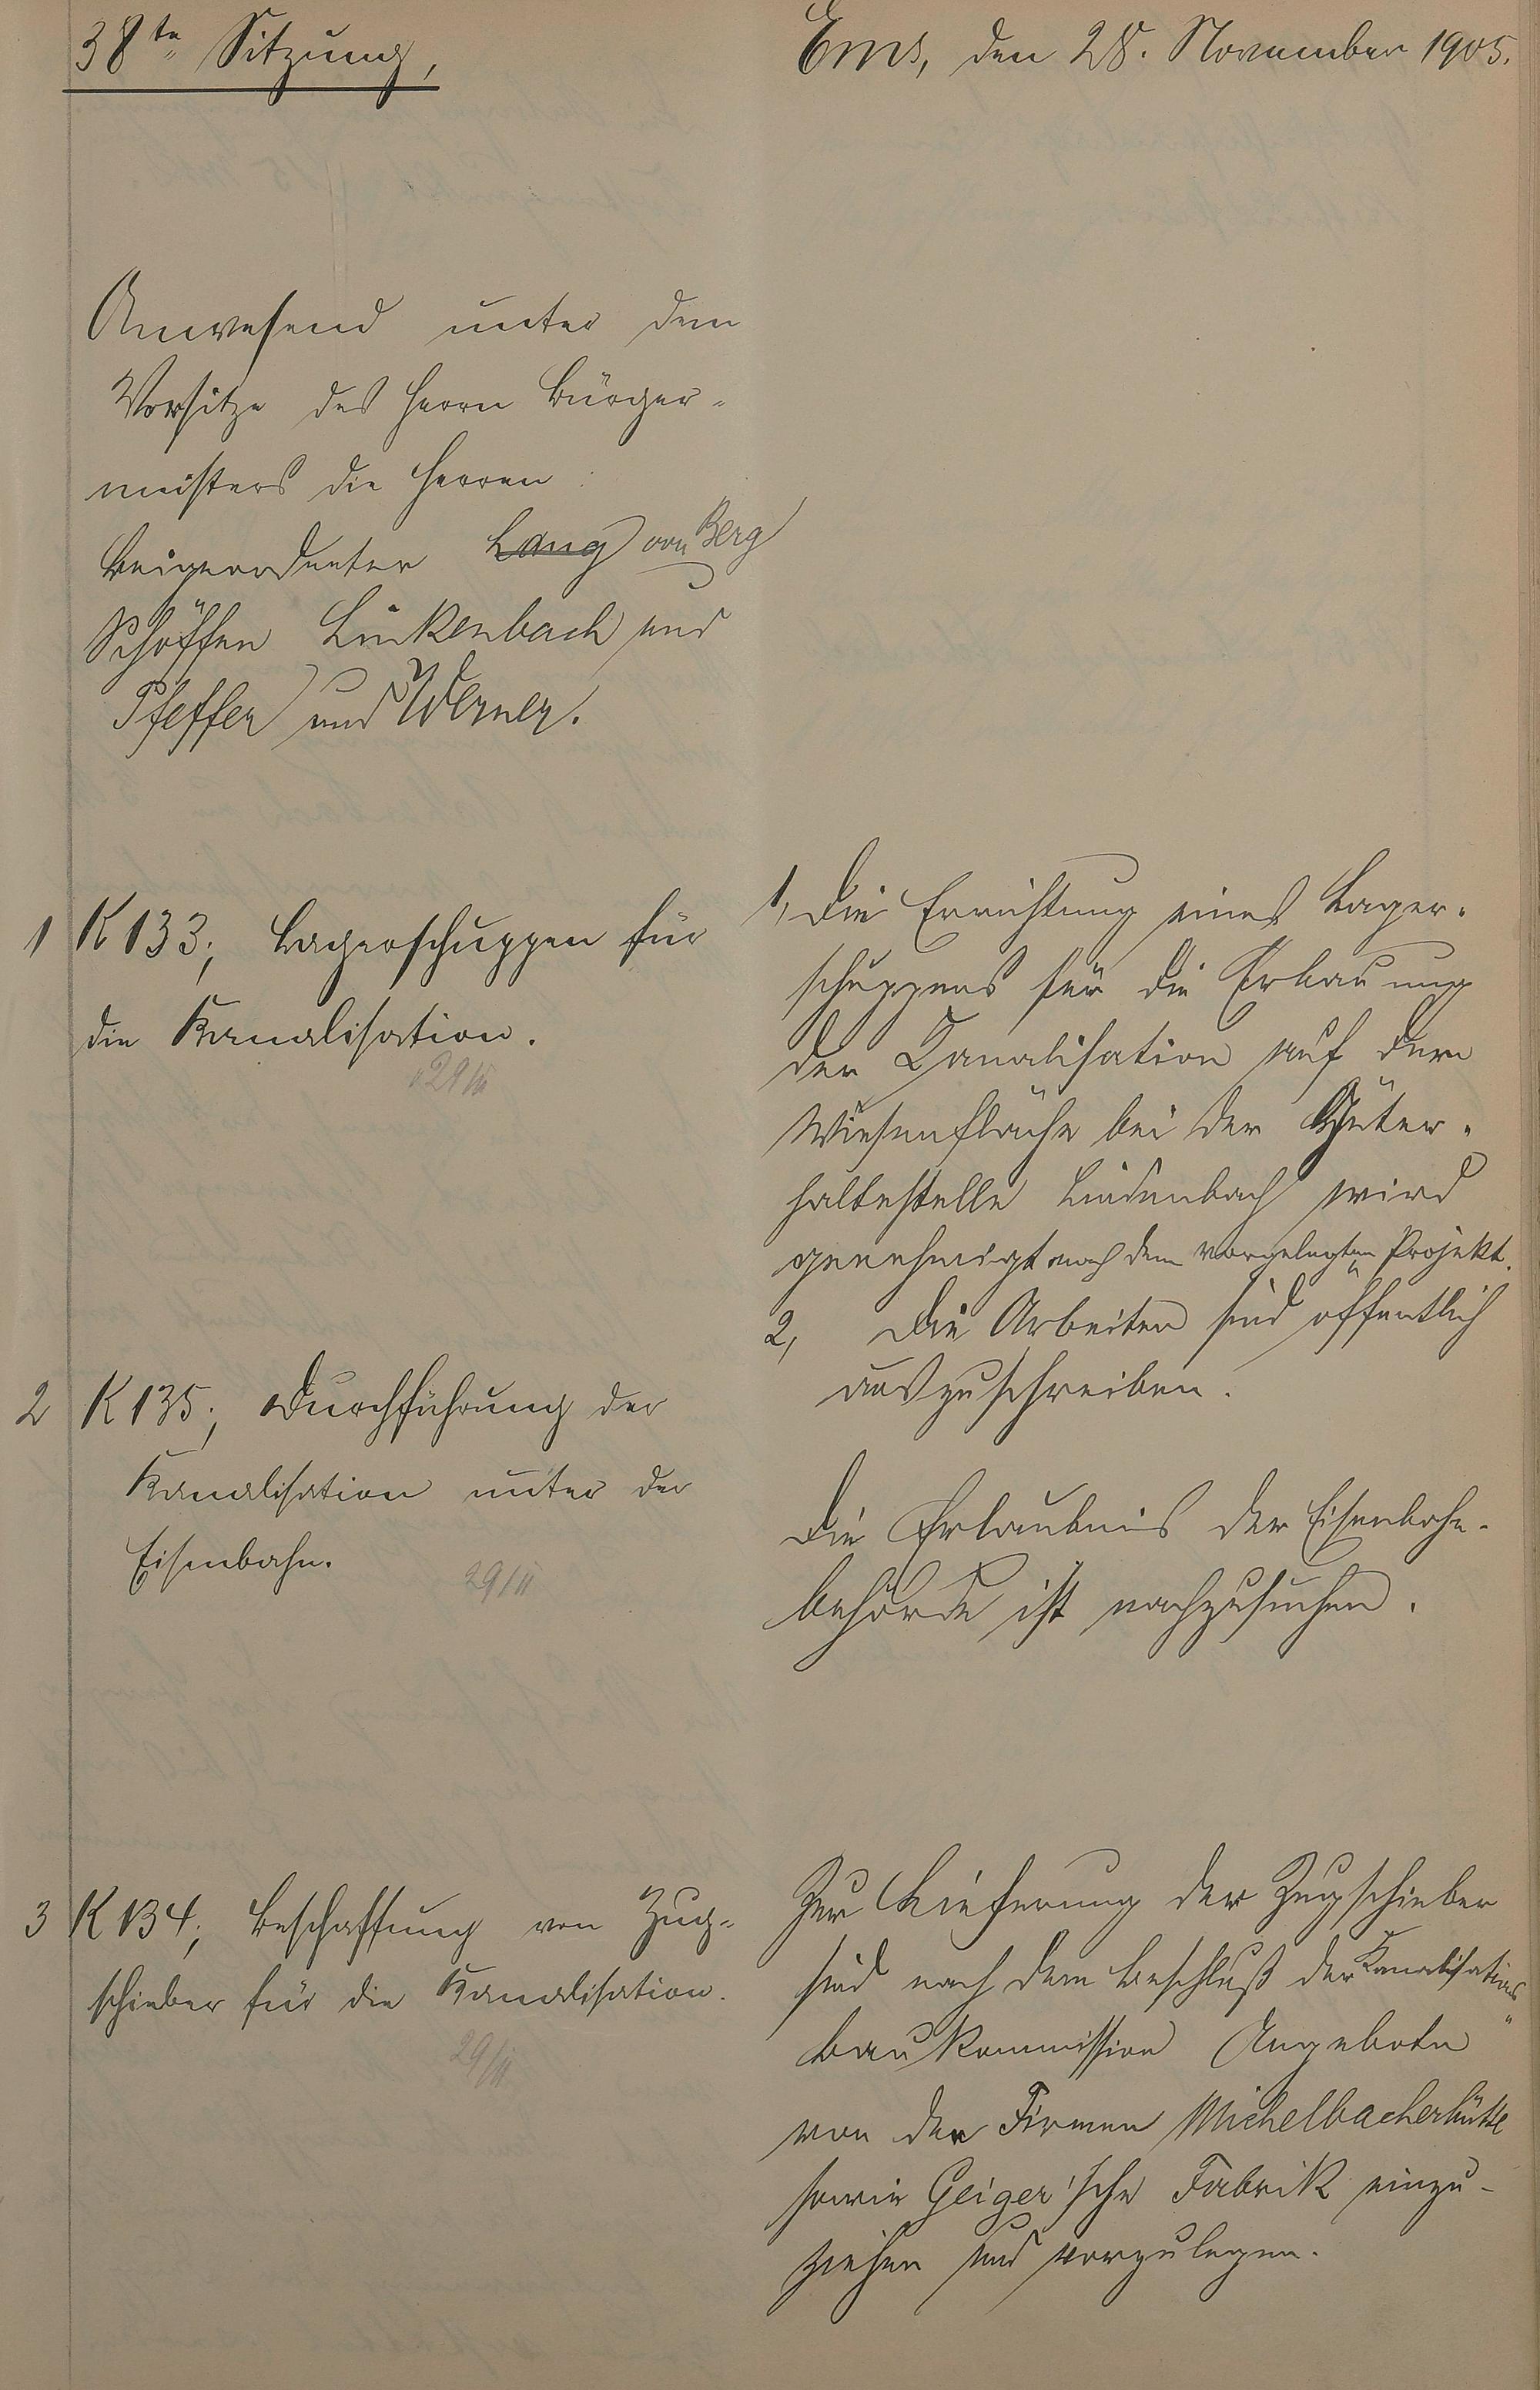 38te Sitzung,
Ems, den 28. November 1905.
Anwesend unter dem
Vorsitze des Herrn Bürger-
meisters die Herren:
Beigeordneter Lang von Berg
Schöffen Linkenbach und
Pfeffer und Werner.
1 K 133; Lagerschuppen für
die Kanalisation.
29/11
1, Die Errichtung eines Lager-
schuppens für die Erbauung
der Kanalisation auf dem
Wiesenfläche bei der Güter-
haltestelle Lindenbach wird
genehmigt nach dem vorgelegten Projekt.
2, Die Arbeiten sind öffentlich
auszuschreiben.
2 K 135; Durchführung der
Kanalisation unter der
Eisenbahn.
29/11
Die Erlaubnis der Eisenbahn-
behörde ist nachzusuchen.
3 K 134; Beschaffung von Zug-
schieber für die Kanalisation.
29/11
Zur Lieferung der Zugschieber
sind nach dem Beschluß der Kanalisations-
baukommission Angebote
von der Firmen Michelbacherhütte
sowie Geiger'sche Fabrik einzu-
ziehen und vorzulegen.